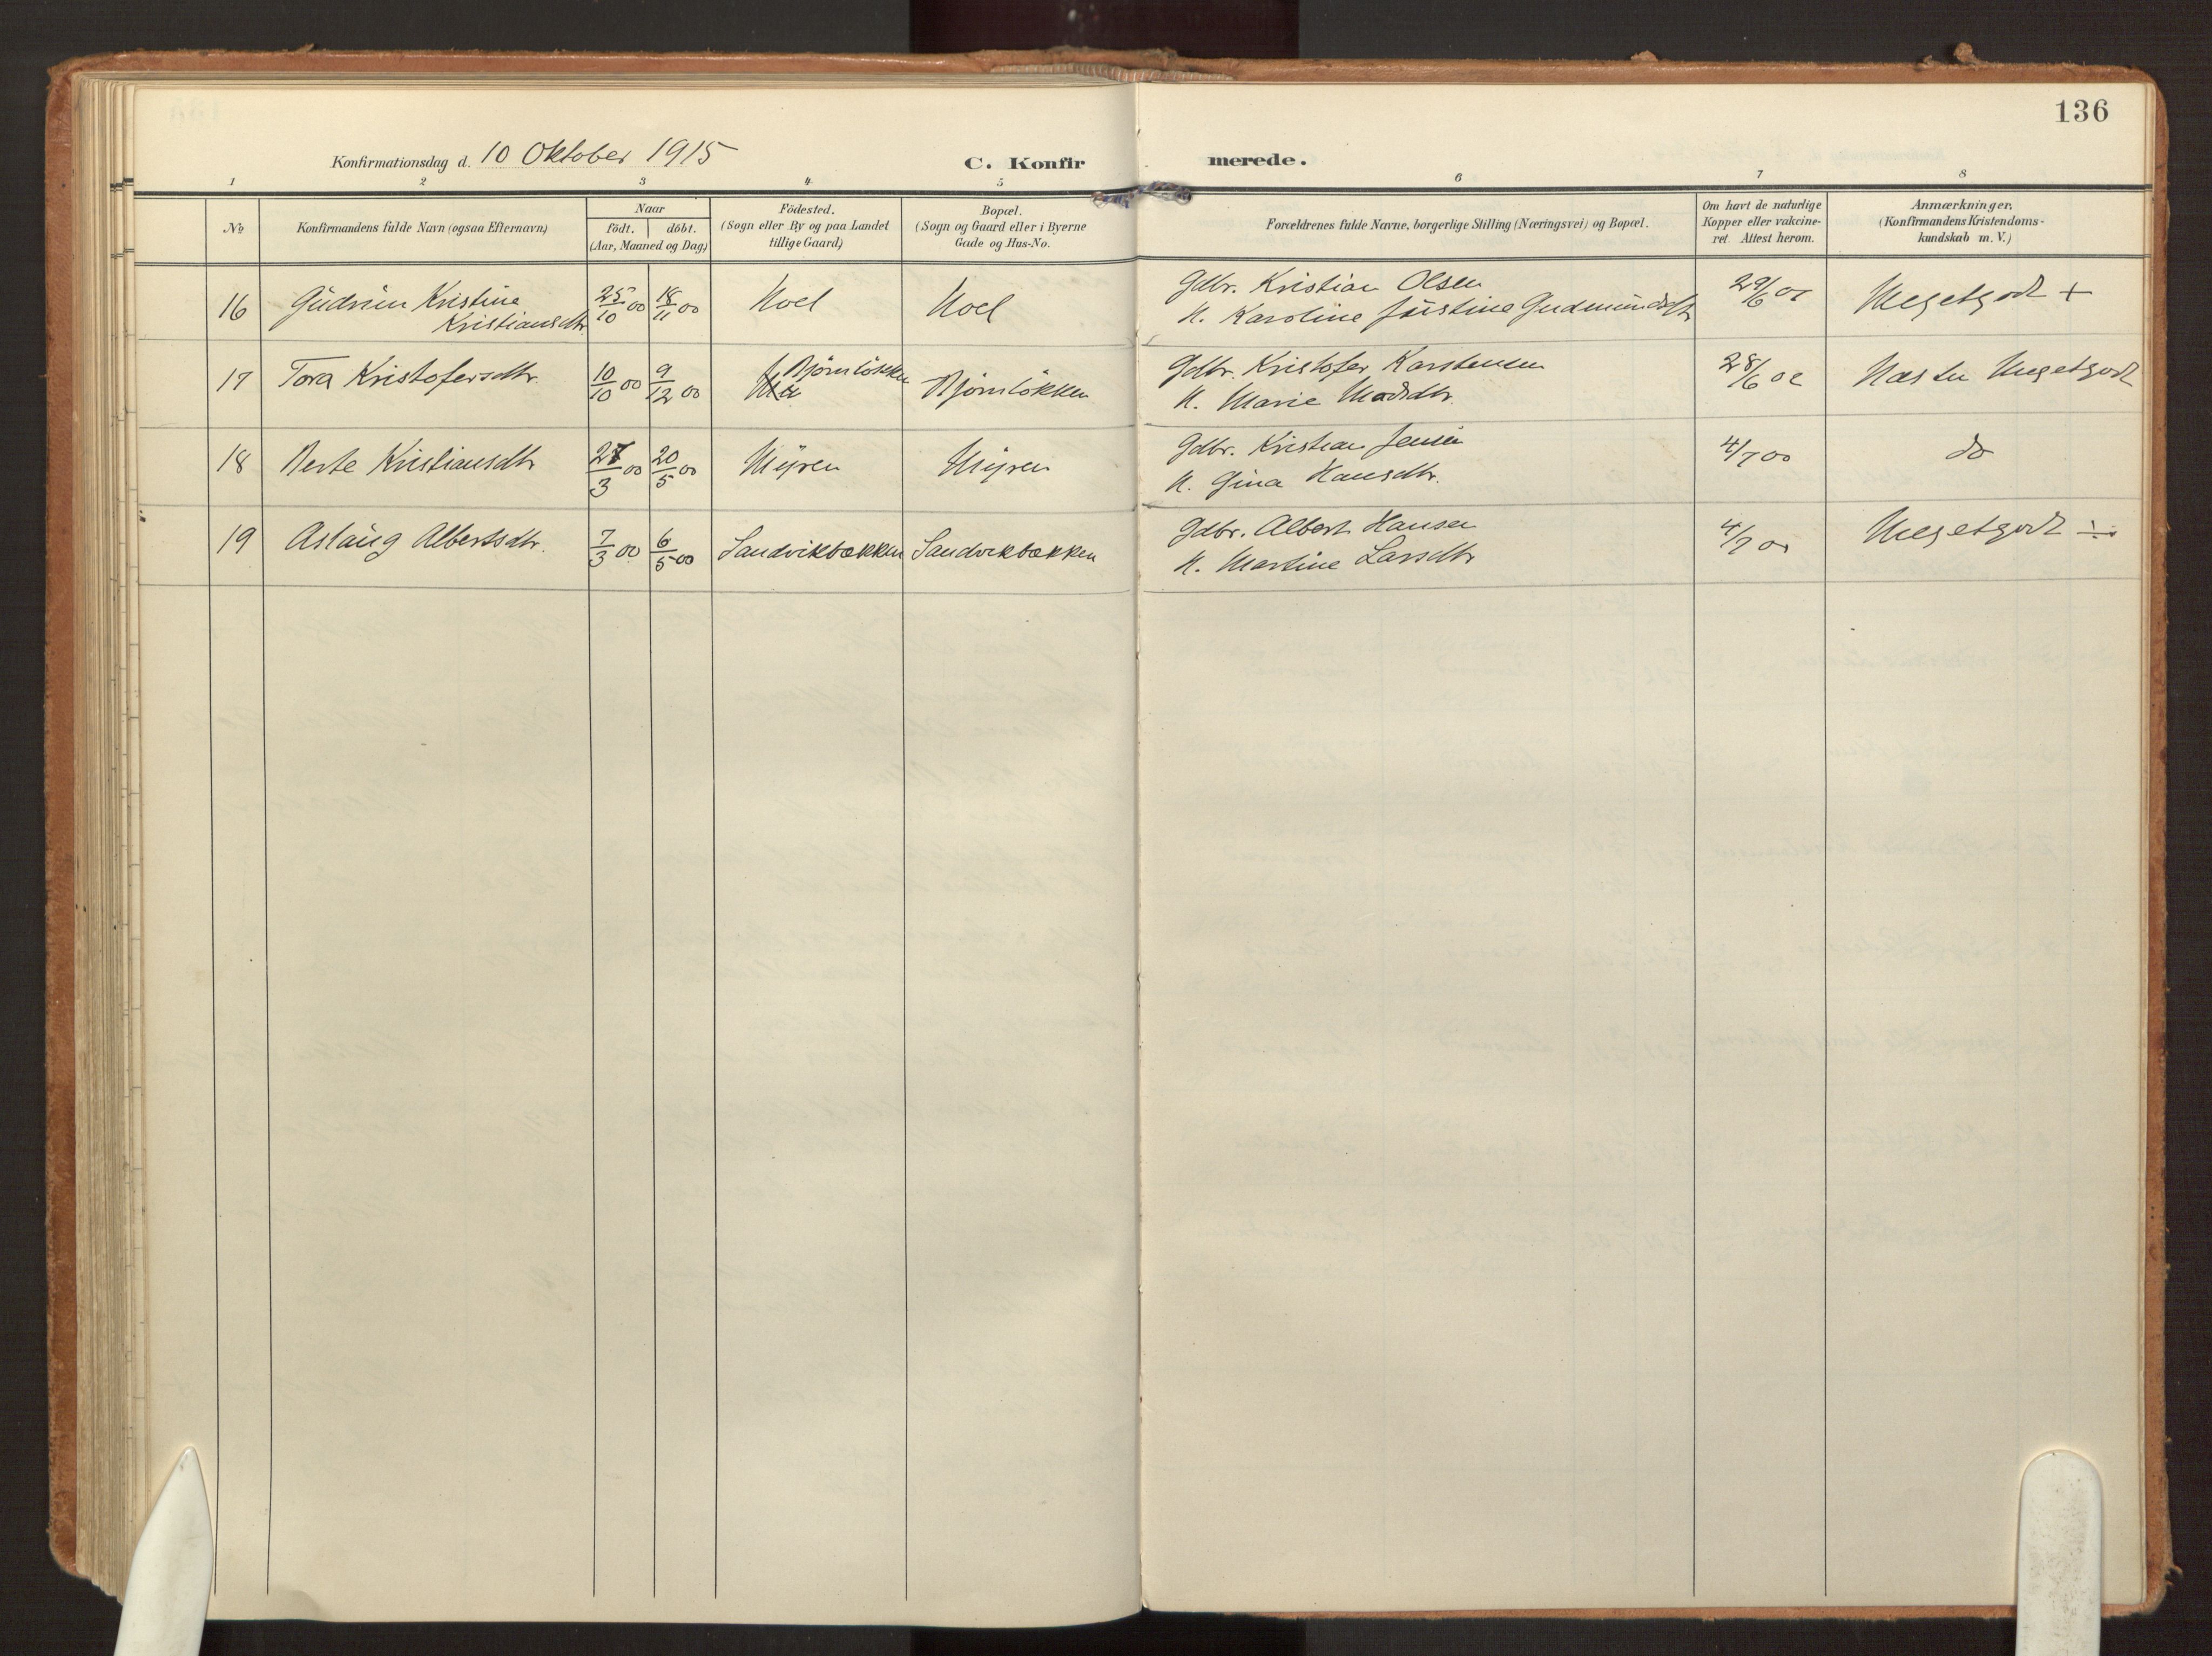 136
Konfirmationsdag d. 10 Oktober 1915
C. Konfir merede.
1 2 3 4. 5 6 7 8
№
Konfirmandens fulde Navn (ogsaa Efternavn)
Naar
födt. döbt.
(Aar, Maaned og Dag)
Födested.
(Sogn eller By og paa Landet
tillige Gaard)
Bopæl.
(Sogn og Gaard eller i Byerne
Gade og Hus-No.
Forældrenes fulde Navne, borgerlige Stilling (Næringsvei) og Bopæl.
Om havt de naturlige
Kopper eller vakcine-
ret. Attest herom.
Anmærkninger.
(Konfirmandens Kristendoms-
kundskab m. V.)
16 Gudrun Kristine 25/10 00 18/11 00 Moel Moel Gdbr. Kristian Olsen 29/6 Megetgodt +
Kristiansdtr. H. Karoline Justine Gudmundsdtr
17 Tora Kristofersdtr. 10/10 00 9/12 00 Bjørnløkken Bjørnløkken Gdbr. Kristofer Karstensen 28/6 02 Næsten Megetgodt
H. Marie Madsdtr.
18 Berte Kristiansdtr 3 00 20/5 00 Myren Myren Gdbr. Kristian Jensen 4/7 00 do
H. Gina Hansdtr.
19 Aslaug Albertsdtr. 7/3 00 6/5 00 Sandvikbækken Sandvikbækken Gdbr. Albert Hansen 4/7 Megetgodt ÷
H. Martine Larsdtr